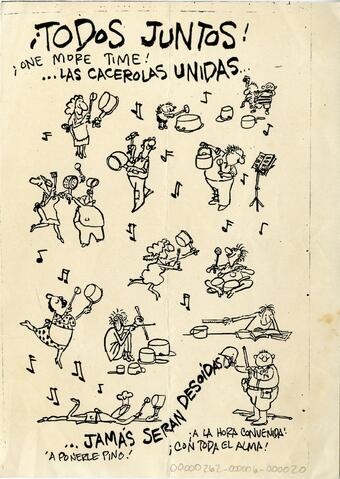 ¡TODOS JUNTOS!
¡ONE MORE TIME!
...LAS CACEROLAS UNIDAS...
...JAMÁS SERAN DESOIDAS
"A PONERLE PINO!"
¡A LA HORA CONVENIDA!
¡CON TODA EL ALMA!
00000262-00006-000020